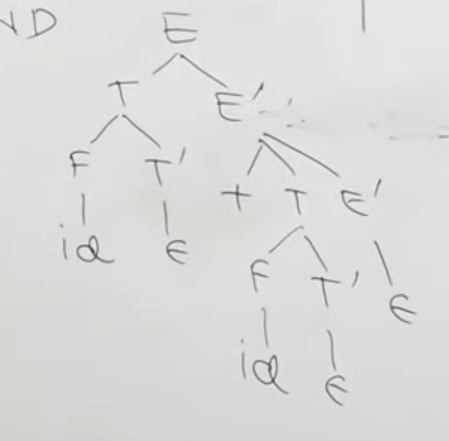 ND
E
T E'
F T' + T E'
id ϵ F T' ϵ
id ϵ